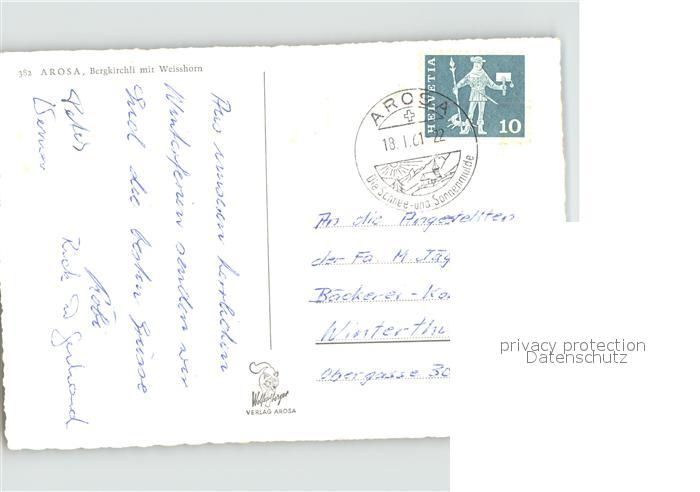 382 AROSA, Bergkirchli mit Weisshorn
Aus unseren herrlichen
Winterferien senden wir
Euch die besten Grüsse
Peter
Werner
HELVETIA
10
AROSA
18.1.61-22
Die Schnee-und Sonnenmulde
An die Angestellten
der Fa. M. Jäg
Bäckerei-Ko
Winterthu
Obergasse 30
VERLAG AROSA
privacy protection
Datenschutz